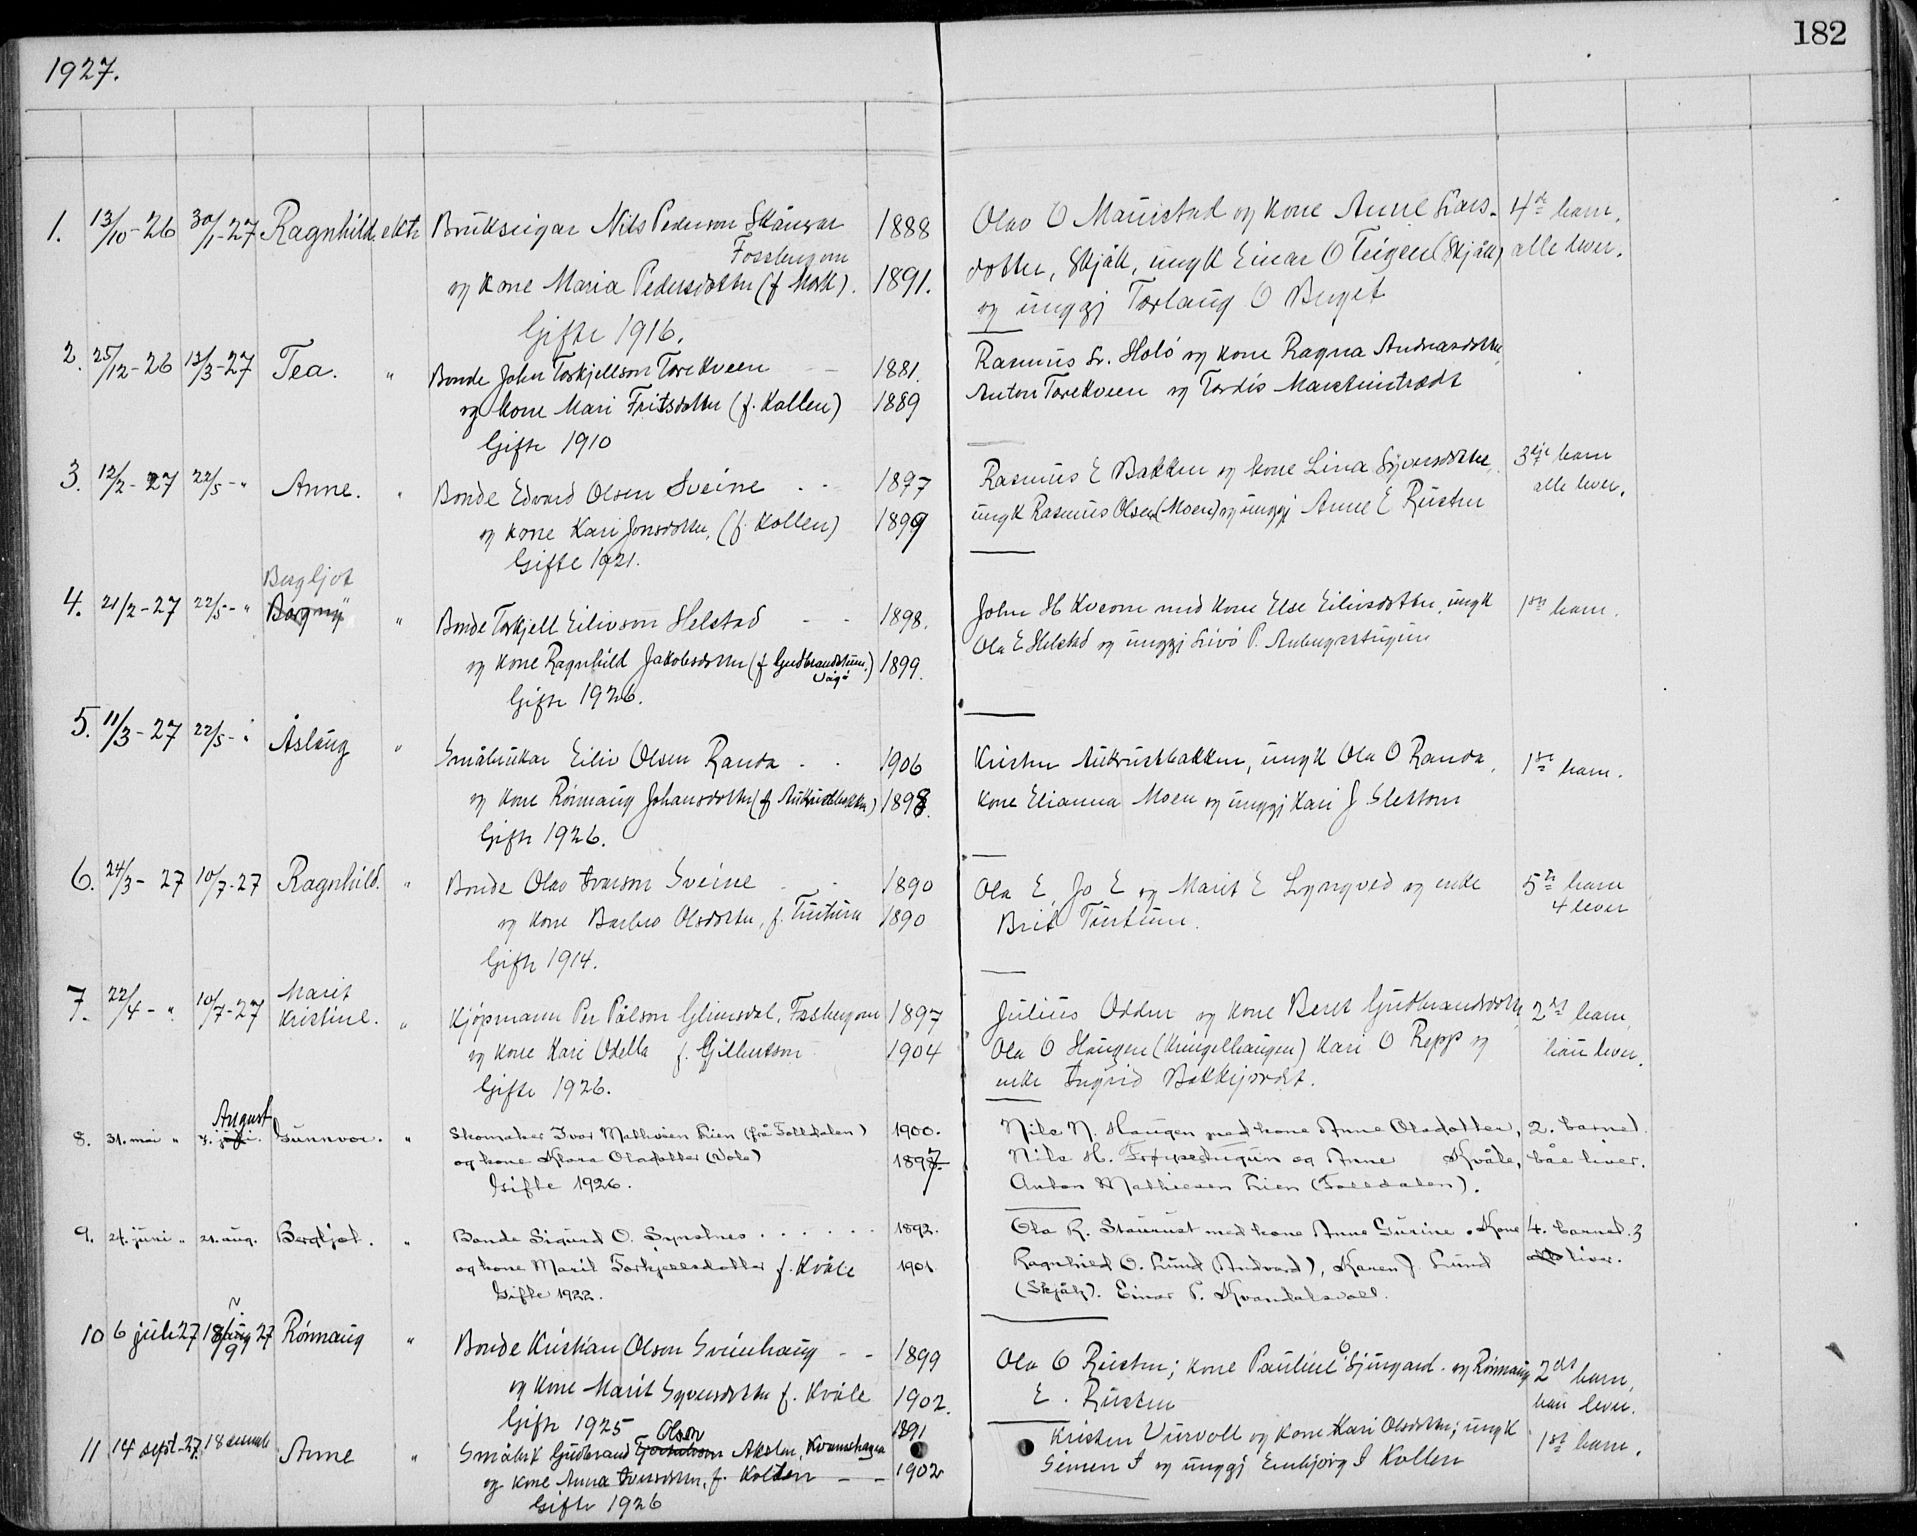 182
1927.
1. 13/10-26 30/1-27 Ragnhild. ekte Brukseigar Nils Pederson Skånsar 1888
Fossbergom
og kone Maria Pedersdotter (f Mork). 1891.
Gifte 1916.
Olav O Maurstad og kone Anne Lars- 4de barn,
dotter, Skjåk, ungk Einar O Teigen (Skjåk) alle lever.
og unggj Torlaug O Berget
2. 25/12-26 13/3-27 Tea. " Bonde John Torkjellson Torekveen 1881.
og kone Mari Fritsdotter (f. Kollen) 1889
Gifte 1910
Rasmus Holö og kone Ragna Andreasdotter,
Anton Torekveen og Tordis
3. 12/2-27 22/5-" Anne. " Bonde Edvard Olsen Sveine 1897
og kone Kari Jonsdotter, (f. Kollen) 1899
Gifte 1921.
Rasmus E Bakken og kone Lina Syversdotter,
ungk Rasmus Olsen (Moen) og unggj Anne E Rusten
3dje barn
alle lever.
Bergljot
4. 21/2-27 22/5-" Borgny " Bonde Torkjell Eilivson Helstad 1898.
og kone Ragnhild Jakobsdotter (f Gudbrandstuen.) 1899.
Vågå
Gifte 1926.
John H Kveom med kone Else Eilivsdotter, ungk 1ste barn.
Ola E Helstad og unggj Livö P.
5. 11/3-27 22/5-" Åslaug " Småbrukar Eiliv Olsen Randa 1906
og kone Rönnaug Johansdotter (f Aukrustbakken) 1898.
Gifte 1926.
Kristen Aukrustbakken, ungk Ola O Randa, 1ste barn.
kone Elianna Moen og unggj Kari J Slettom
6. 24/3-27 10/7-27 Ragnhild. " Bonde Olav Ivarson Sveine 1890
og kone Barbro Olsdotter, f. Turtum 1890
Gifte 1914.
Ola E, Jo E og Marit E Lyngved og enke 5te barn
4 lever
Brit Turtum.
Marit
7. 22/4-" 10/7-27 Kristine. " Kjøpmann Per Pålson Glimsdal, Fossbergom 1897
og kone Kari Odella f. Gjilbertson 1904
Gifte 1926.
Julius Odden og kone Beret Gudbrandsdotter, 2det barn,
Ola O Haugen (Kringelhaugen) Kari O Repp og lever.
enke Ingrid Bakkejordet.
August
8. 31. mai " 7. juli. Gunnvor. " Skomaker Ivar Mathisen Lien (frå Folldalen) 1900.
og kone Klara Olsdotter (Vole) 1897.
Gifte 1926.
Nils N. Haugen med kone Anne Olsdotter, 2. barnet.
Nils H. Frøysestugun og Anne Kvåle, båe liver.
Anton Mathiesen Lien (Folldalen).
9. 24. juni " 21. aug. Bergljot. " Bonde Sigurd O. Synstnes . . . . . . 1892.
og kone Marit Torkjellsdotter f. Kvåle 1901
Gifte 1922.
Ola R. Staurust med kone Anne Gurine. Kone 4. barnet. 3
Ragnhild O. Lund (Andvord), Karen J. Lund alle liver.
(Skjåk). Einar P. Kvandalsvoll.
10 6 juli 27 18/9 27 Rönnaug " Bonde Kristian Olson Sveinhaug 1899
og kone Marit Syversdotter f. Kvåle 1902.
Gifte 1925
Ola O Rusten; kone Pauline O Sjurgard. og Rönnaug 2det barn,
E. Rusten lever.
11 14 sept-27. 18 Anne " Småbrk Gudbrand Olson Kvamshagen 1891
og kone Anna Iversdotter, f. Kollen 1902
Gifte 1926
Kristen Vurvoll og kone Kari Olsdotter; ungk 1ste barn.
Simen I og unggj Embjörg I Kollen